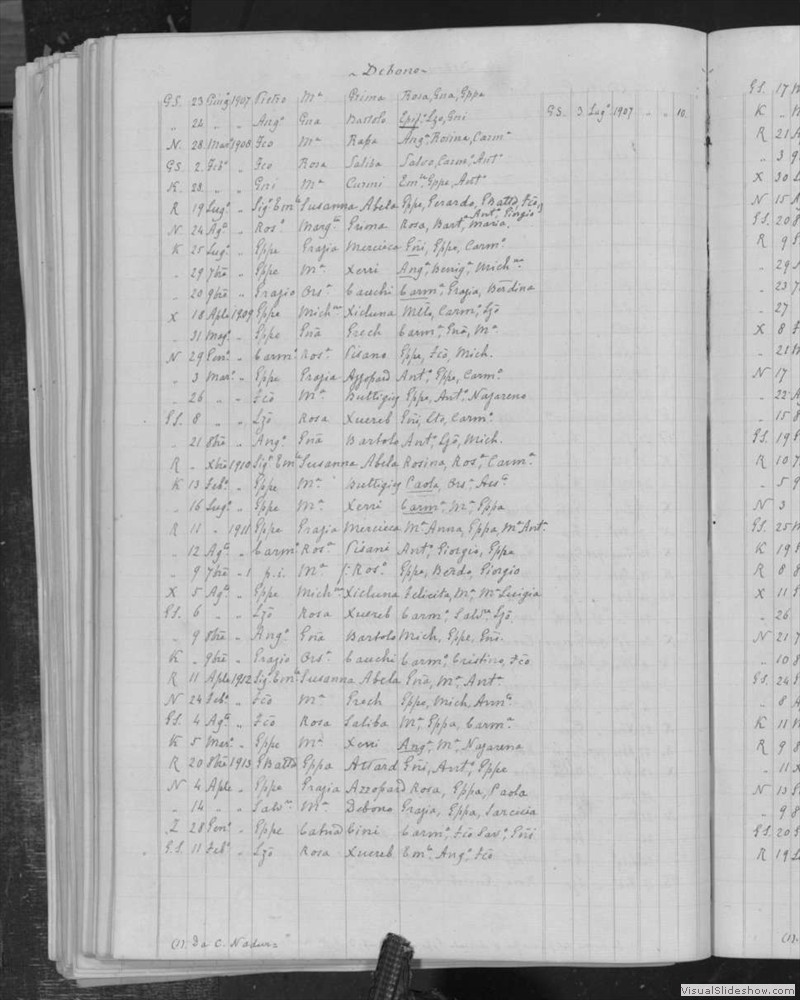 ~ Debono ~
G.S. 23 Giugº 1907 Pietro Mª Grima Rosa, Gna, Gppa
„ 24 „ „ Angº Gna Bartolo Epifª, Lzo, Gni G.S. 3 Lugº 1907 „ „ 10.
N. 28 Marº 1908 Fco Mª Rapa Angª, Rosina, Carmª
GS. 2 Febº „ Fco Rosa Saliba Salvo, Carmª, Antª
K. 23 „ „ Gni Mª Cumi Emla, Gppe, Antª
R 19 Lugº „ Sigr Emle Susanna Abela Gppe, Gerardo, GBatta, Fco,
N 24 Agº „ Rosº Margta Grima Rosa, Bartª, Maria, Antº, Giorgio
K 25 Lugº „ Gppe Grazia Mercieca Gni, Gppe, Carmª
„ 29 7bre „ Gppe Mª Xerri Angª, Benigª, Michna
„ 20 9bre „ Grazio Orsª Cauchi Carmª, Grazia, Berdina
X 18 Aple 1909 Gppe Michna Xicluna Mlla, Carmª, Lzo
„ 31 Magº „ Gppe Gna Grech Carmª, Gna, Mª
N 29 Genº „ Carmº Rosª Pisana Gppe, Fco, Mich.
„ 3 Marº „ Gppe Grazia Azzopard Antª, Gppe, Carmª
„ 26 „ „ Fco Mª Buttigig Gppe, Antª, Nazareno
GS. 8 „ „ Lzo Rosa Xuereb Gni, Cto, Carmª
„ 21 8bre „ Angº Gna Bartolo Antª, Lzo, Mich.
R „ Xbre 1910 Sigr Emle Susanna Abela Rosina, Rosª, Carmª
K 13 Febº „ Gppe Mª Buttigig Paola, Orsª, Assta
„ 16 Lugº „ Gppe Mª Xerri Carmª, Mª, Gppa
R 11 „ 1911 Gppe Grazia Mercieca Mª Anna, Gppa, Mª Antª
„ 12 Agº „ Carmº Rosª Pisani Antª, Giorgio, Gppe
„ 9 7bre „ 1 p.i. Mª f: Rosª Gppe, Berdo, Giorgio
X 5 Agº „ Gppe Michna Xicluna Felicita, Mª, Mª Luigia
GS. 6 „ „ Lzo Rosa Xuereb Carmª, Salvª, Lzo
„ 9 8bre „ Angº Gna Bartolo Mich, Gppe, Gni.
K „ 9bre „ Grazio Orsª Cauchi Carmª, Cristina, Fco
R 11 Aple 1912 Sigr Emle Susanna Abela Gna, Mª, Antª
N 24 Febº „ Fco Mª Grech Gppe, Mich, Annta
GS. 4 Agº „ Fco Rosa Saliba Mª, Gppa, Carmª
K 5 Marº „ Gppe Mª Xerri Angª, Mª, Nazarena
R 20 8bre 1913 GBatta Gppa Attard Gni, Antª, Gppe
N 4 Aple „ Gppe Grazia Azzopard Rosa, Gppa, Paola
„ 14 „ „ Salvre Mª Debono Grazia, Gppa, Sarcisia
Z 28 Genº „ Gppe Catna Cini Carmª, Fco Savº, Gni
G.S. 11 Febº „ Lzo Rosa Xuereb Emla, Angª, Fco
(1). Da C. Nadur=
GS. 17
K „
R 21
„ 3
X 30
N 15
GS. 20
R 9
„ 29
„ 23
„ 27
X 8
„ 21
N 17
„ 22
„ 15
GS. 19
R 10
„ 5
N 3
GS. 25
K 19
R 8
X 11
„ 26
N 21
„ 10
GS. 24
„ 8
K 11
R 9
„ 11
N 13
„ 9
GS. 20
R 19
VisualSlideshow.com